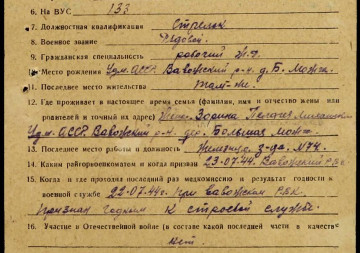 6. На ВУС 133
7. Должностная квалификация Стрелок
8. Военное звание Рядовой.
9. Гражданская специальность рабочий
10. Место рождения Удм. АССР Вавожский р-н д. Б. Можга
11. Последнее место жительства Там-же.
12. Где проживает в настоящее время семья (фамилия, имя и отчество жены или
родителей и точный их адрес) Жена: Зорина Пелагия
Удм. АССР Вавожский р-н. дер. Большая Можга
13. Последнее место работы и должность з-да. №74.
14. Каким райгорвоенкоматом и когда призван 23.07.44г. Вавожский РВК.
15. Когда и где проходил последний раз медкомиссию и результат годности к
военной службе 22.07.44г. при Вавожском РВК.
Признан годным к строевой службе.
16. Участие в Отечественной войне (в составе какой последней части в качестве
нет.